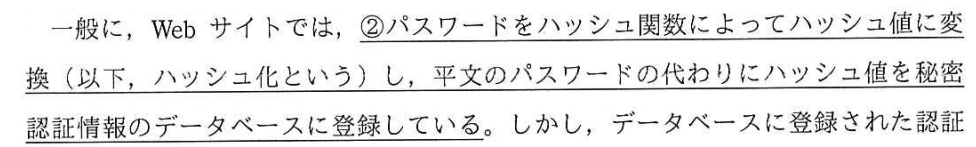 一般に，Web サイトでは，②パスワードをハッシュ関数によってハッシュ値に変
換（以下，ハッシュ化という）し，平文のパスワードの代わりにハッシュ値を秘密
認証情報のデータベースに登録している。しかし，データベースに登録された認証